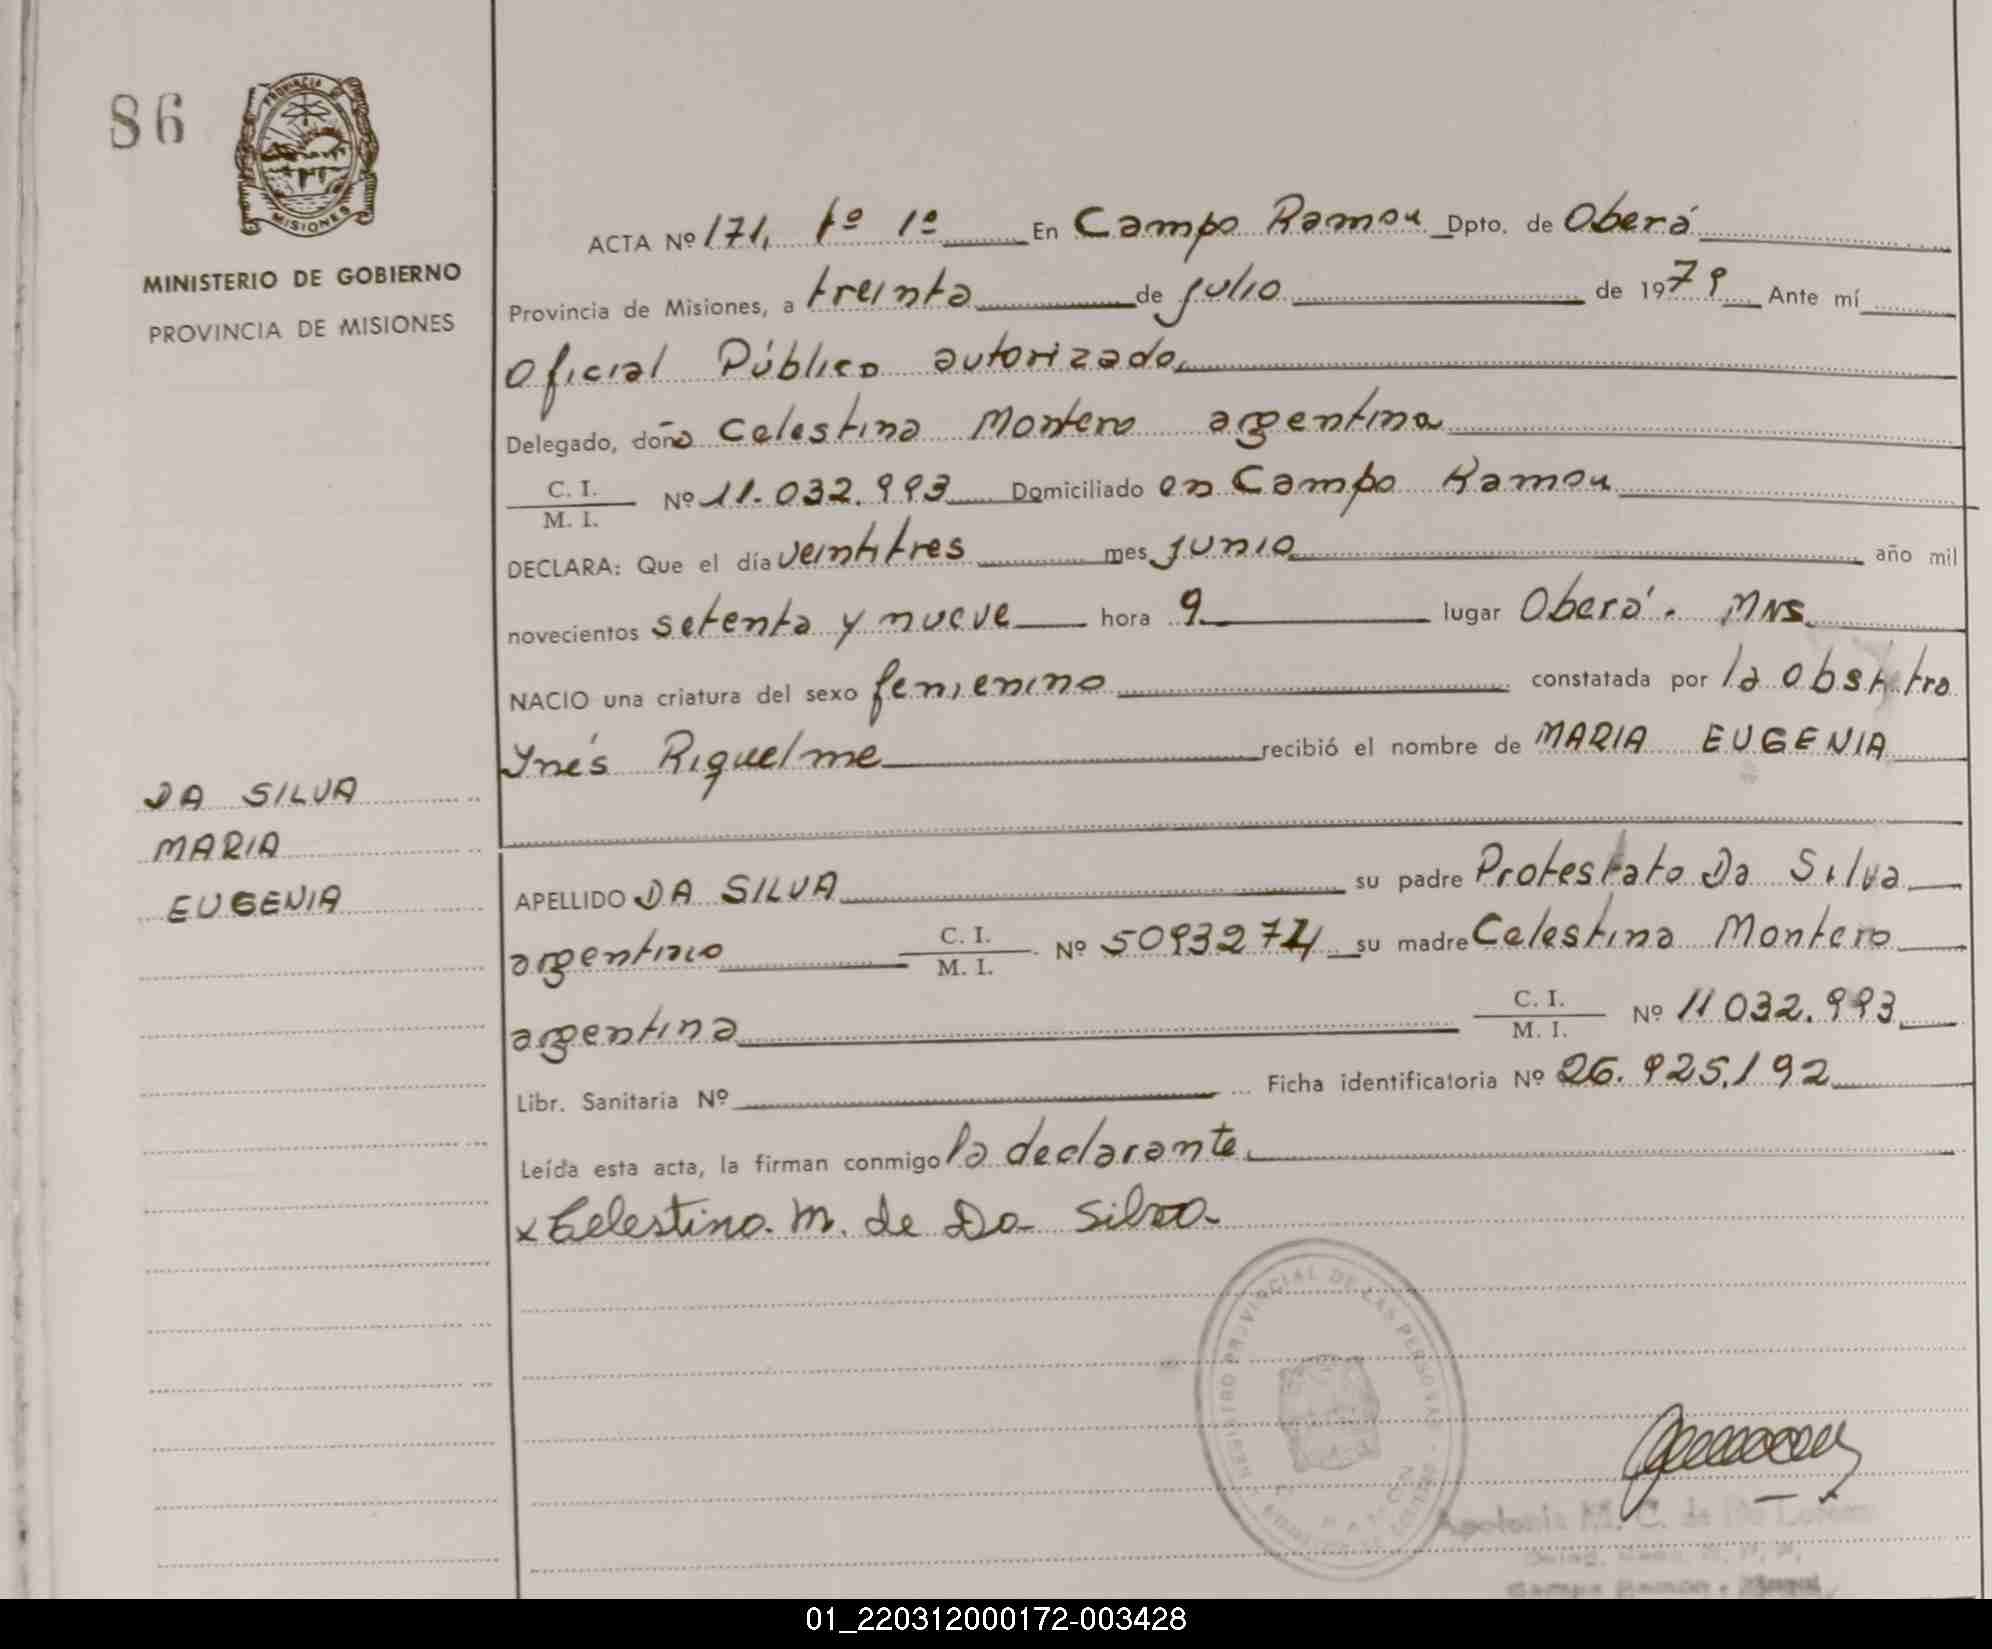 86
PROVINCIA DE
MISIONES
MINISTERIO DE GOBIERNO
PROVINCIA DE MISIONES
ACTA Nº 171, tº 1º En Campo Ramon Dpto. de Oberá
Provincia de Misiones, a treinta de julio de 1979 Ante mí
Oficial Público autorizado,
Delegado, doña Celestina Montero argentina
C. I.
M. I. Nº 11.032.993 Domiciliado en Campo Ramon
DECLARA: Que el día veintitres mes junio año mil
novecientos setenta y nueve hora 9 lugar Oberá. MNS.
NACIO una criatura del sexo femenino constatada por la obstetra
Ynés Riquelme recibió el nombre de MARIA EUGENIA
DA SILVA
MARIA
EUGENIA
APELLIDO DA SILVA su padre Protestato Da Silva
argentino C. I.
M. I. Nº 5093274 su madre Celestina Montero
argentina C. I.
M. I. Nº 11032.993
Libr. Sanitaria Nº Ficha identificatoria Nº 26.925.192
Leída esta acta, la firman conmigo la declarante.
x Celestina M. de Da Silva
REGISTRO PROVINCIAL DE LAS PERSONAS
Apolonia M. C. de
Campo Ramon
01_220312000172-003428